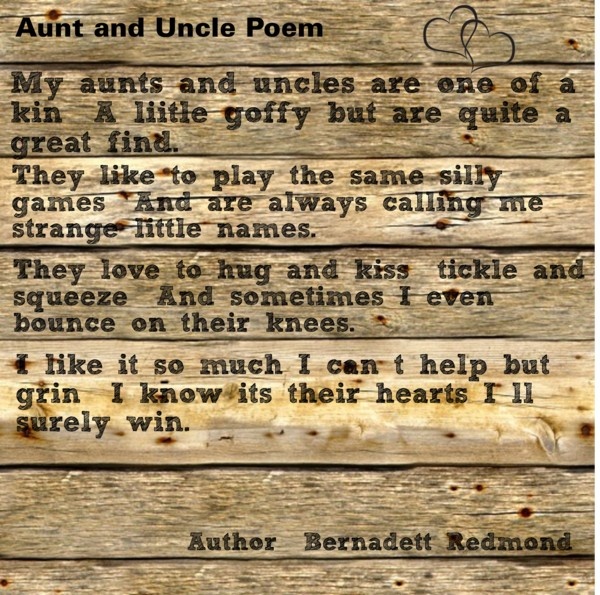 Aunt and Uncle Poem
My aunts and uncles are one of a
kin A liitle goffy but are quite a
great find.
They like to play the same silly
games And are always calling me
strange little names.
They love to hug and kiss tickle and
squeeze And sometimes I even
bounce on their knees.
I like it so much I can t help but
grin I know its their hearts I ll
surely win.
Author Bernadett Redmond